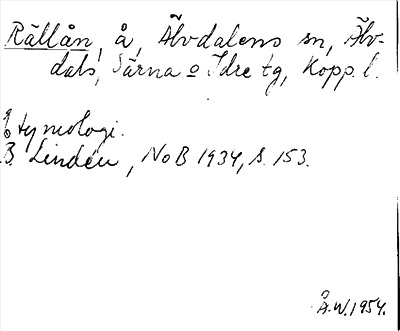 Rällån, å, Älvdalens sn, Älv-
dals, Särna o Idre tg, Kopp. l.
Etymologi.
B. Lindén, NoB 1934, s. 153.
Å.W. 1954.